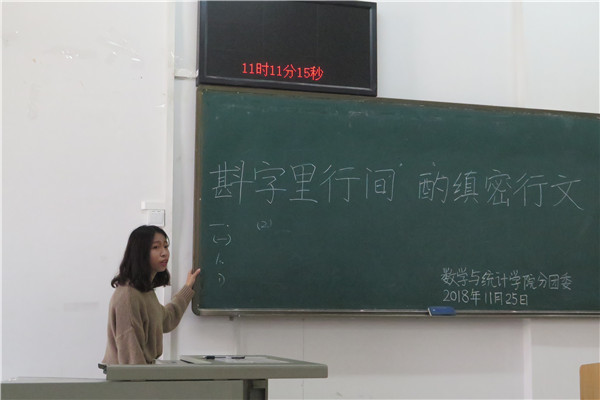 11时11分15秒
斟字里行间 酌缜密行文
一、 (2)
(一)
1、
数学与统计学院分团委
2018年11月25日